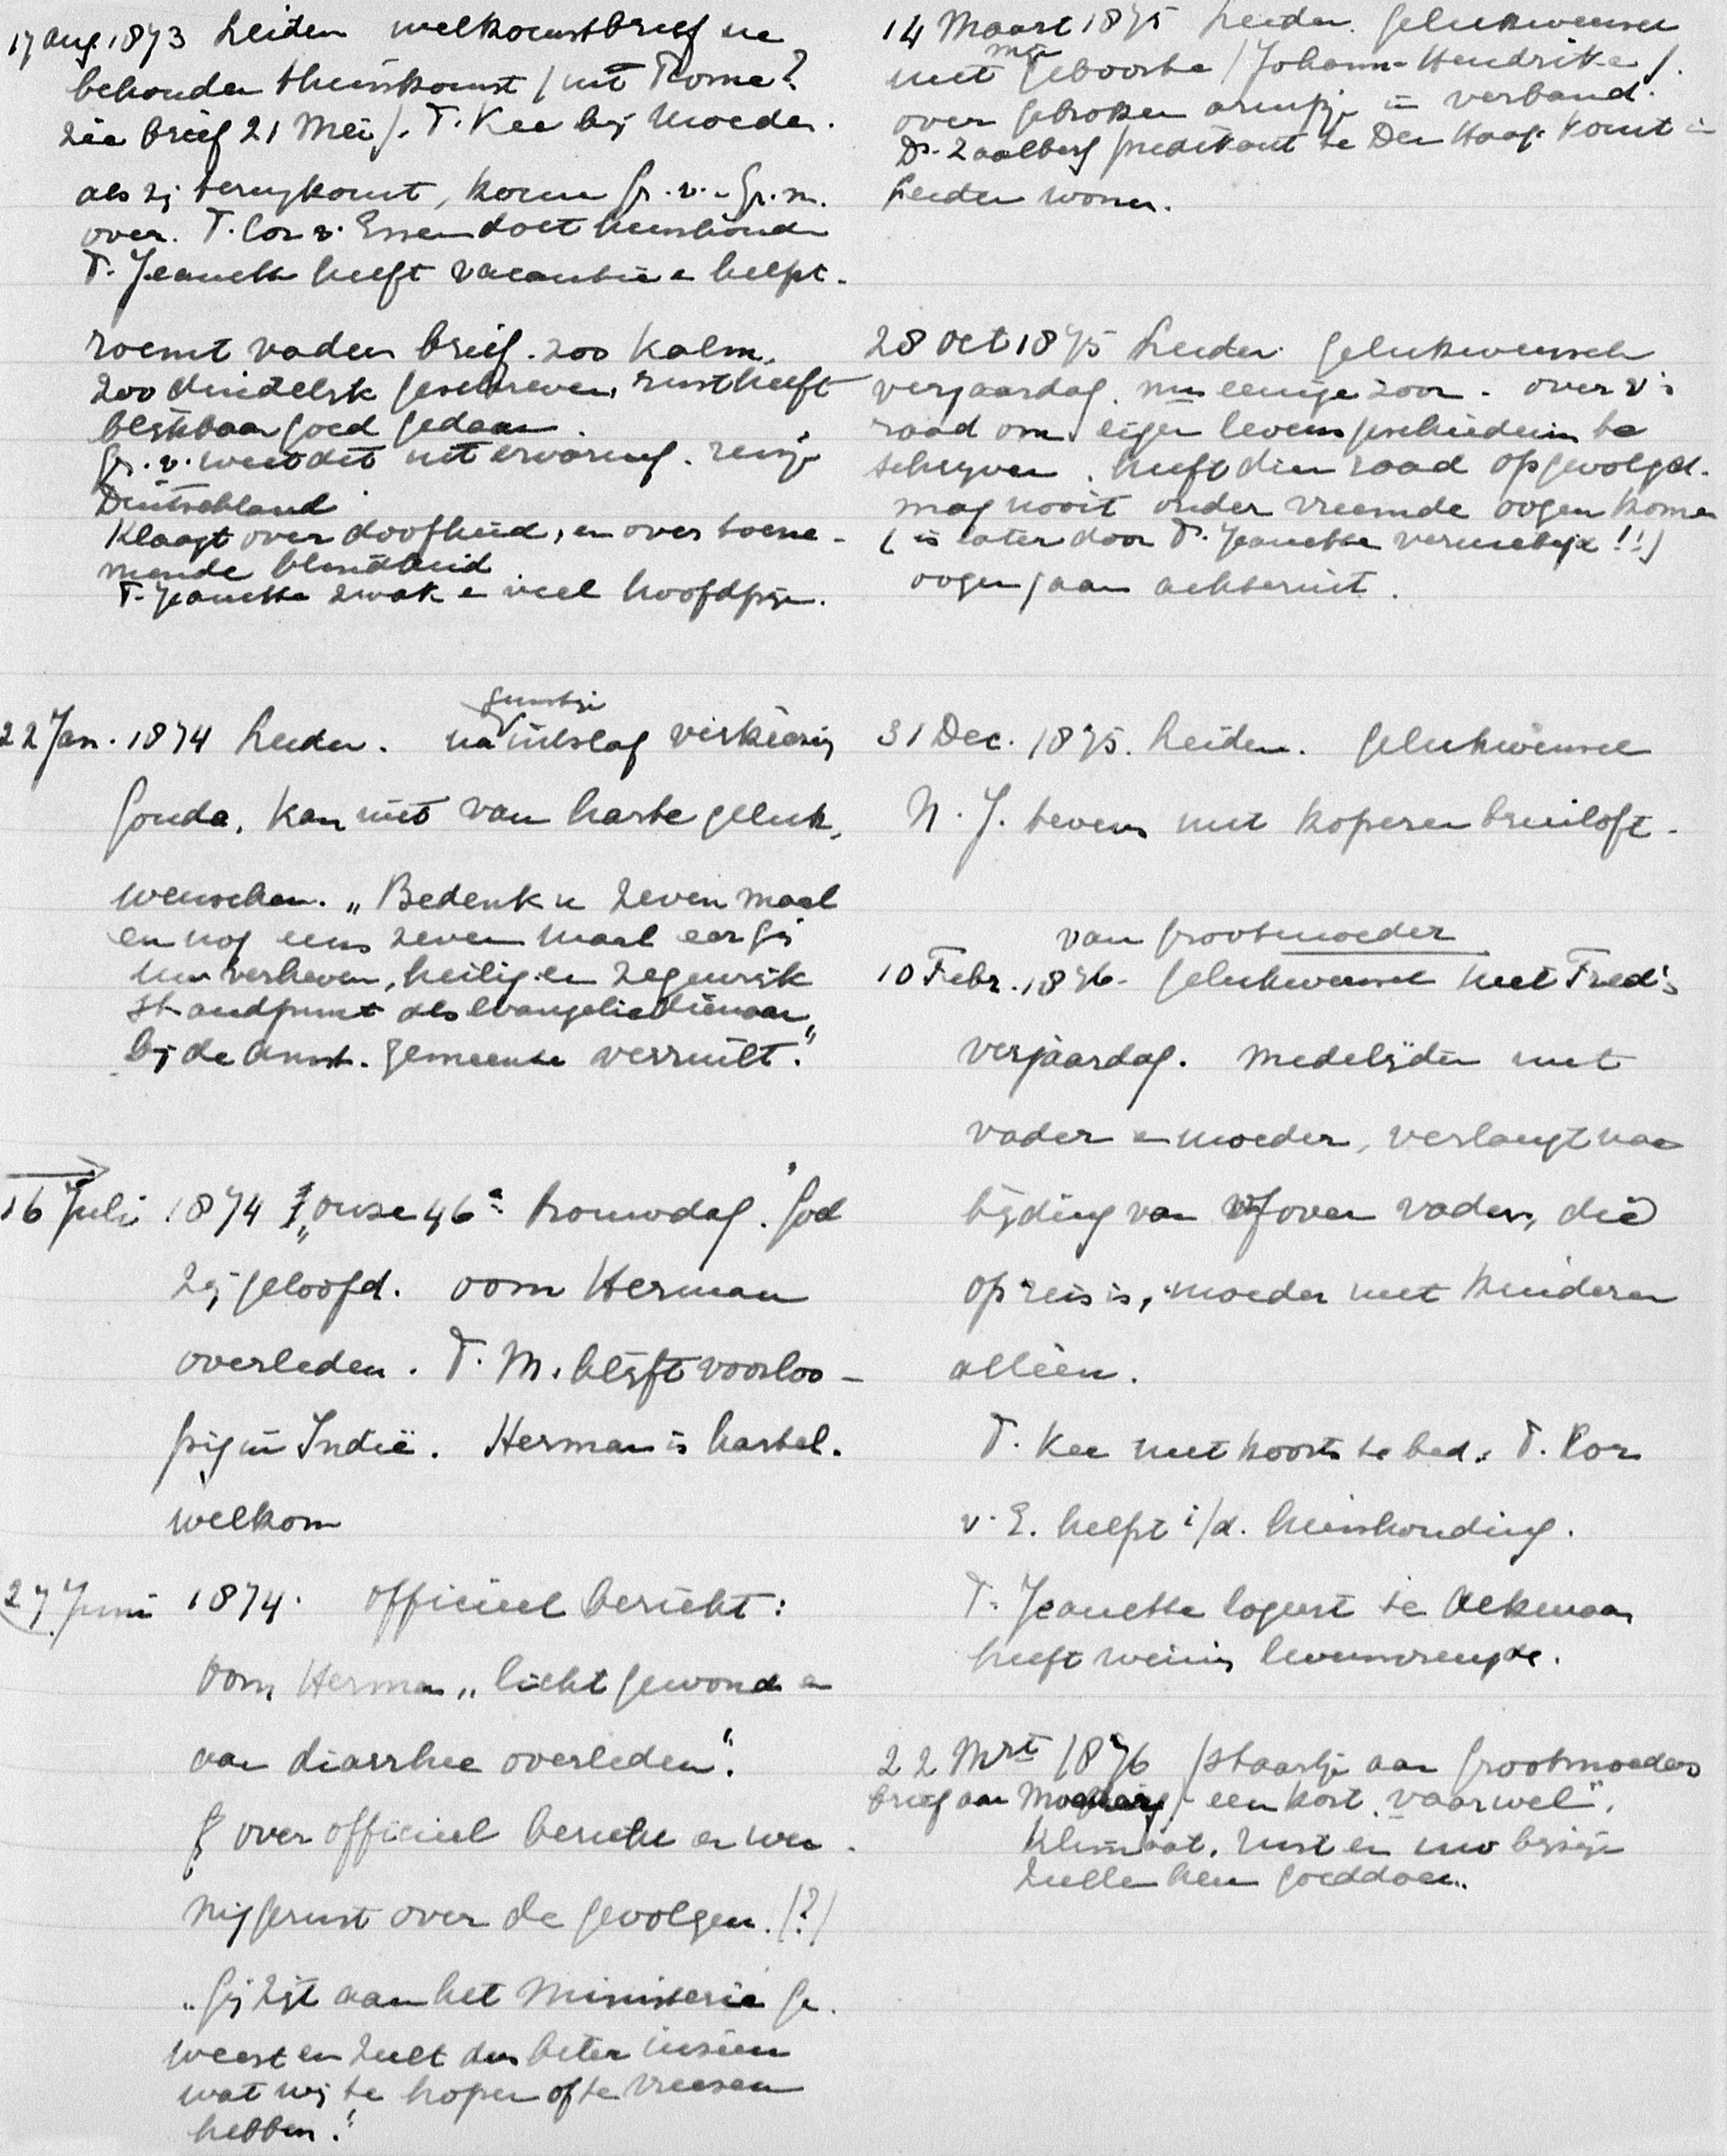 17 aug. 1873 Leiden welkomstbrief na
behouden thuiskomst (uit Rome?
zie brief 21 Mei). T. Kee bij Moeder.
als zij terugkomt, komen Gr.v. en Gr.m.
over. T. Cor v. Essen doet huishouden
T. Jeanette heeft vacantie en helpt.
roemt vaders brief. zoo kalm,
zoo duidelijk geschreven, rust heeft
blijkbaar goed gedaan.
Gr.v. weet dit uit ervaring. reisje
Duitschland.
Klaagt over doofheid, en over toene-
mende blindheid
T. Jeanette zwak en veel hoofdpijn.
22 Jan. 1874 Leiden. na gunstige uitslag verkiezing
Gouda, kan niet van harte geluk,
wenschen. „Bedenk u zeven maal
en nog eens zeven maal eer gij
uw verheven, heilig en zegenrijk
standpunt als evangeliedienaar
bij de Amst. gemeente verruilt."
16 Juli 1874 „onze 46e trouwdag. God
zij geloofd. oom Herman
overleden. T. M. blijft voorloo-
pig in Indië. Herman is hartel.
welkom
27 Juni 1874. officieel bericht:
oom Herman „licht gewond en
aan diarrhee overleden".
over officieel bericht en wei-
nig gerust over de gevolgen. (?)
„Gij zijt aan het Ministerie ge-
weest en zult dus beter inzien
wat wij te hopen of te vreezen
hebben."
14 Maart 1875 Leiden. gelukwensch
met mijn geboorte (Johanna Hendrika).
over gebroken armpje in verband.
Dr. Zaalberg predikant te Den Haag komt in
Leiden wonen.
28 Oct 1875 Leiden. gelukwensch
verjaardag. nu eenige zoon. over v's
raad om eigen levensgeschiedenis te
schrijven. heeft dien raad opgevolgd.
mag nooit onder vreemde oogen komen
(is later door T. Jeanette vernietigd!!)
oogen gaan achteruit.
31 Dec. 1875. Leiden. gelukwensch
N.J. tevens met koperen bruiloft.
van grootmoeder
10 Febr. 1876. gelukwensch met Fred's
verjaardag. medelijden met
vader en moeder, verlangt naar
tijding van of over vader, die
op reis is, moeder met kinderen
alleen.
T. Kee met koorts te bed. T. Cor
v. E. helpt i/d. huishouding.
T. Jeanette logeert te Alkmaar
heeft weinig levensvreugde.
22 Mrt 1876 (staartje aan grootmoeders
brief aan Moeder) een kort „vaarwel".
klimaat, rust en uw bijzijn
zullen hem goeddoen.